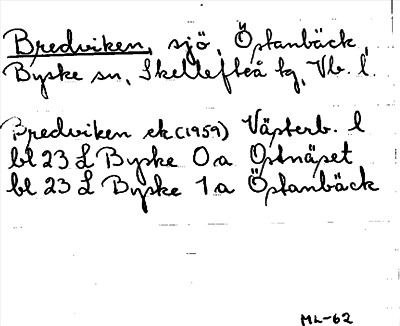 Bredviken, sjö, Östanbäck,
Byske sn, Skellefteå kg, Vb. l.
Bredviken ek (1959) Västerb. l
bl 23 L Byske 0a Ostnäset
bl 23 L Byske 1a Östanbäck
ML-62